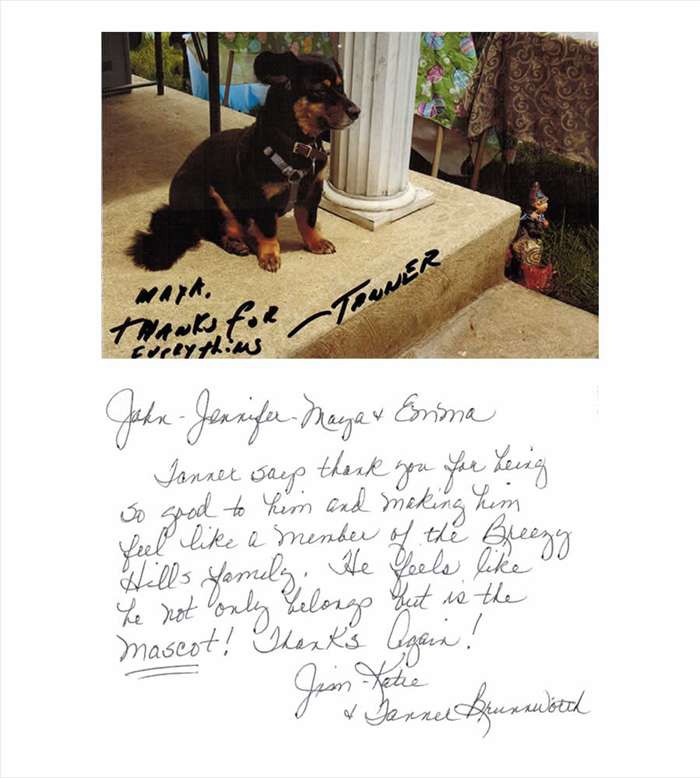 MAYA,
THANKS FOR
EVERYTHING
— TANNER
John - Jennifer - Maya & Emma
Tanner says thank you for being
so good to him and making him
feel like a member of the Breezy
Hills family. He feels like
he not only belongs but is the
mascot! Thanks Again!
Jim - Katie
& Tanner Brunnworth